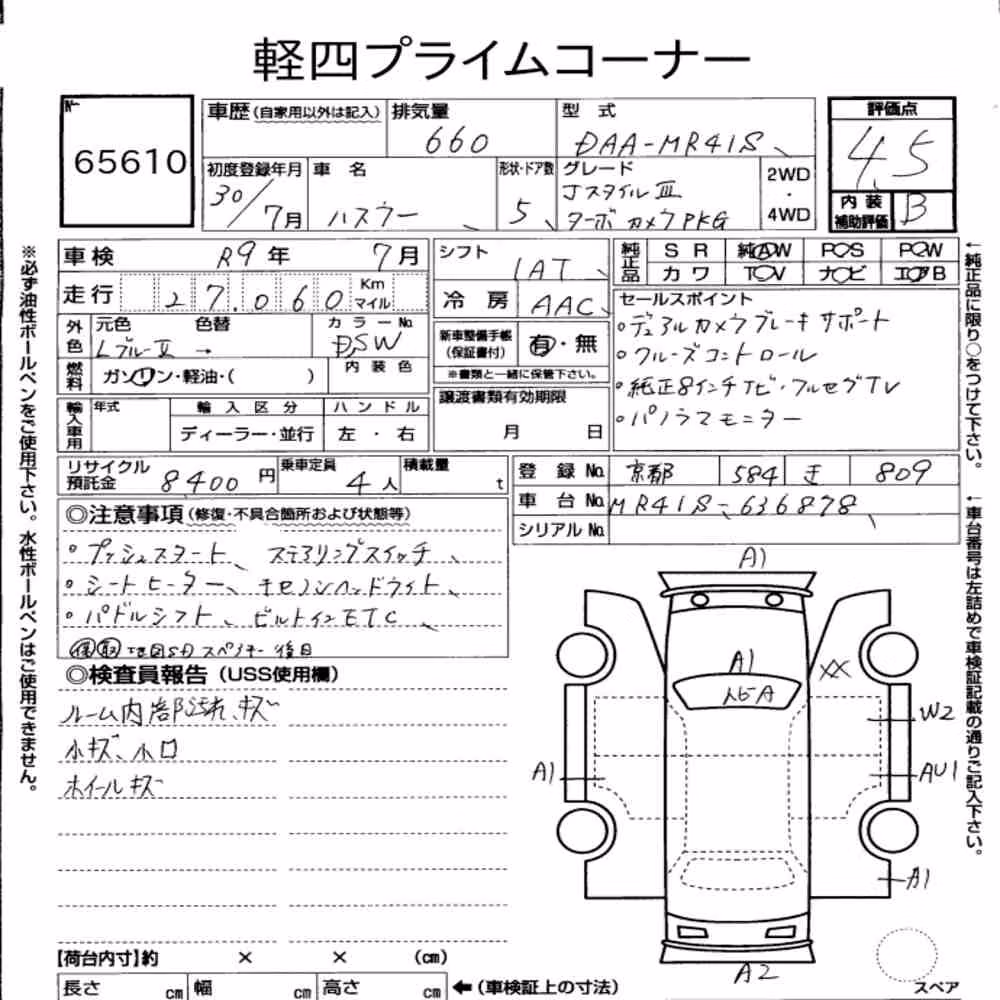 軽四プライムコーナー
No.
65610
車歴(自家用以外は記入) 排気量 660 型式 DAA-MR41S
評価点 4.5
初度登録年月 30/7月 車名 ハスラー 形状・ドア数 5 グレード JスタイルⅢ ターボ カメラPKG 2WD・4WD
内装補助評価 B
車検 R9年 7月 シフト IAT 純正品 SR 純AW P◯S P◯W
カワ T◯V ナビ エアB
走行 27,060 Km マイル 冷房 AAC
外色 元色 色替 カラーNo.
Lブルー Ⅱ → DSW
新車整備手帳(保証書付) 有・無
※書類と一緒に保管下さい。
燃料 ガソリン・軽油・( ) 内装色
セールスポイント
◦デュアルカメラブレーキサポート
◦クルーズコントロール
◦純正8インチナビ・フルセグTV
◦パノラマモニター
輸入車用 年式 輸入区分 ハンドル
ディーラー・並行 左・右
譲渡書類有効期限
月 日
リサイクル預託金 8400円 乗車定員 4人 積載量 t
登録No. 京都 584 き 809
車台No. MR41S-636878
シリアルNo.
◎注意事項(修復・不具合箇所および状態等)
◦プッシュスタート、ステアリングスイッチ、
◦シートヒーター、キセノンヘッドライト、
◦パドルシフト、ビルトインETC、
保 取 地図SD スペアキー 後日
◎検査員報告(USS使用欄)
ルーム内部汚れ、キズ
小キズ、小凹
ホイールキズ
A1
A1
XX
W2
A1
AU1
A1
A2
スペア
【荷台内寸】約 × × (cm)
長さ cm 幅 cm 高さ cm ←(車検証上の寸法)
※必ず油性ボールペンをご使用下さい。水性ボールペンはご使用できません。
←純正品に限り○をつけて下さい。
←車台番号は左詰めで車検証記載の通りご記入下さい。